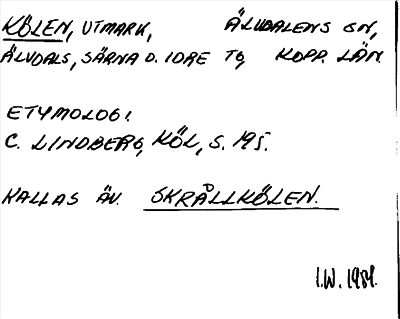 KÖLEN, UTMARK, ÄLVDALENS SN,
ÄLVDALS, SÄRNA O. IDRE TG, KOPP. LÄN
ETYMOLOGI.
C. LINDBERG, KÖL, S. 195.
KALLAS ÄV. SKRÅLLKÖLEN.
I.W. 1984.